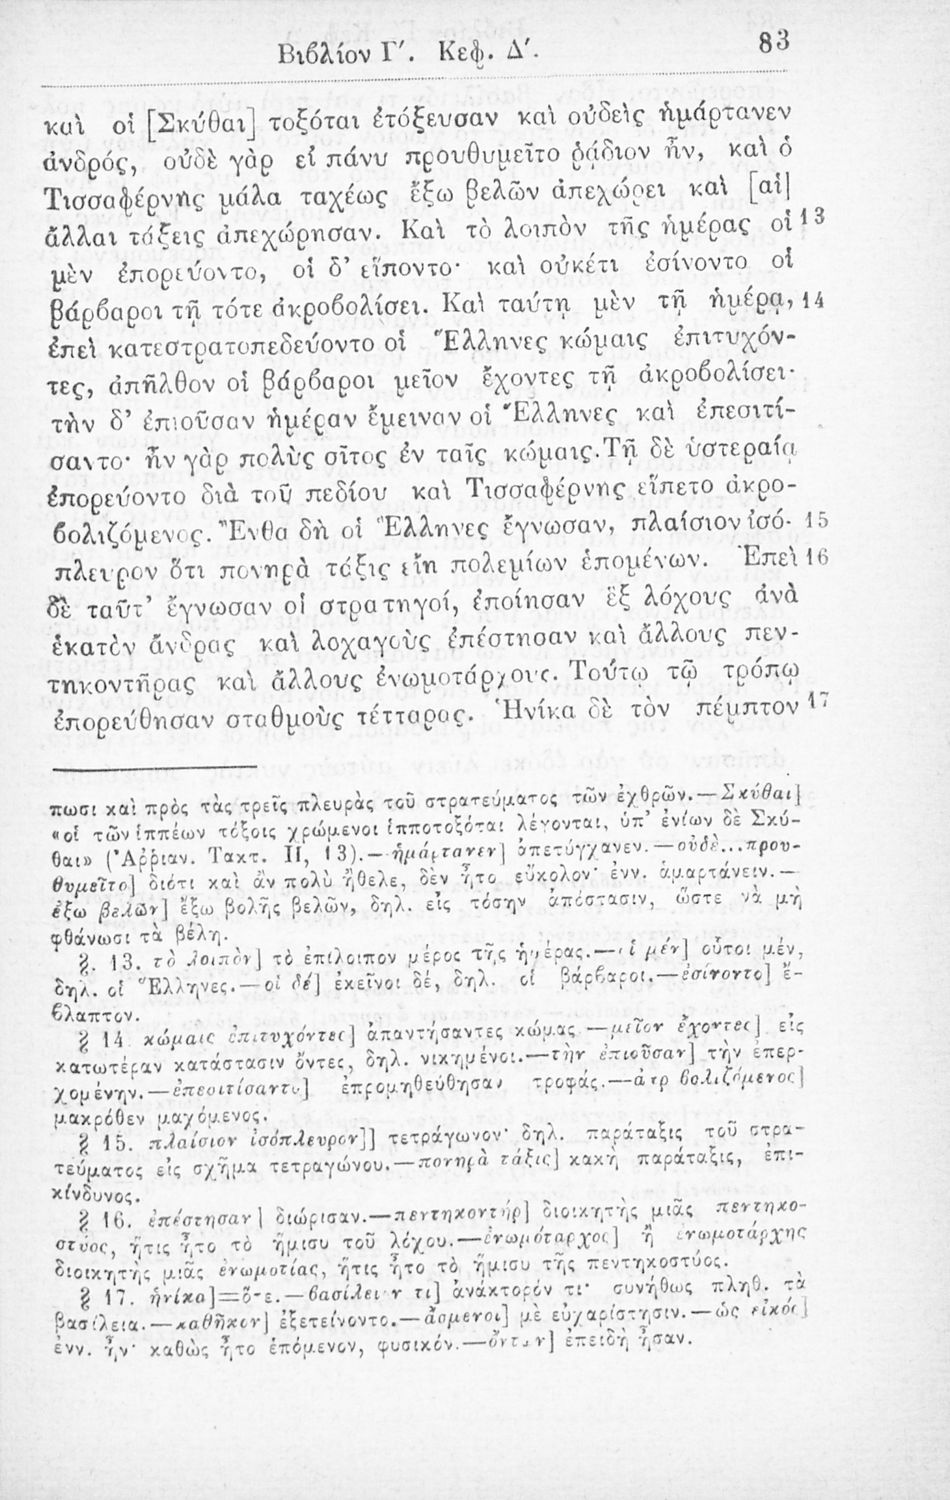 Βιβλίον Γ΄. Κεφ. Δ΄.
83
καὶ οἱ [Σκύθαι] τοξόται ἐτόξευσαν καὶ οὐδεὶς ἡμάρτανεν
ἀνδρός, οὐδὲ γὰρ εἰ πάνυ προυθυμεῖτο ῥᾴδιον ἦν, καὶ ὁ
Τισσαφέρνης μάλα ταχέως ἔξω βελῶν ἀπεχώρει καὶ [αἱ]
ἄλλαι τάξεις ἀπεχώρησαν. Καὶ τὸ λοιπὸν τῆς ἡμέρας οἱ 13
μὲν ἐπορεύοντο, οἱ δ’ εἵποντο· καὶ οὐκέτι ἐσίνοντο οἱ
βάρβαροι τῇ τότε ἀκροβολίσει. Καὶ ταύτῃ μὲν τῇ ἡμέρᾳ, 14
ἐπεὶ κατεστρατοπεδεύοντο οἱ Ἕλληνες κώμαις ἐπιτυχόν-
τες, ἀπῆλθον οἱ βάρβαροι μεῖον ἔχοντες τῇ ἀκροβολίσει·
τὴν δ’ ἐπιοῦσαν ἡμέραν ἔμειναν οἱ Ἕλληνες καὶ ἐπεσιτί-
σαντο· ἦν γὰρ πολὺς σῖτος ἐν ταῖς κώμαις. Τῇ δὲ ὑστεραίᾳ
ἐπορεύοντο διὰ τοῦ πεδίου καὶ Τισσαφέρνης εἵπετο ἀκρο-
βολιζόμενος. Ἔνθα δὴ οἱ Ἕλληνες ἔγνωσαν, πλαίσιον ἰσό- 15
πλευρον ὅτι πονηρὰ τάξις εἴη πολεμίων ἑπομένων. Ἐπεὶ 16
δὲ ταῦτ’ ἔγνωσαν οἱ στρατηγοί, ἐποίησαν ἓξ λόχους ἀνὰ
ἑκατὸν ἄνδρας καὶ λοχαγοὺς ἐπέστησαν καὶ ἄλλους πεν-
τηκοντῆρας καὶ ἄλλους ἐνωμοτάρχους. Τούτῳ τῷ τρόπῳ
ἐπορεύθησαν σταθμοὺς τέτταρας. Ἡνίκα δὲ τὸν πέμπτον 17
πωσι καὶ πρὸς τὰς τρεῖς πλευρὰς τοῦ στρατεύματος τῶν ἐχθρῶν.—Σκύθαι]
«οἱ τῶν ἱππέων τόξοις χρώμενοι ἱπποτοξόται λέγονται, ὑπ’ ἐνίων δὲ Σκύ-
θαι» (Ἀῤῥιαν. Τακτ. ΙΙ, 13).—ἡμάρτανεν] ἀπετύγχανεν.—οὐδὲ...πρου-
θυμεῖτο] διότι καὶ ἂν πολὺ ἤθελε, δὲν ἦτο εὔκολον· ἐνν. ἁμαρτάνειν.—
ἔξω βελῶν] ἔξω βολῆς βελῶν, δηλ. εἰς τόσην ἀπόστασιν, ὥστε νὰ μὴ
φθάνωσι τὰ βέλη.
§. 13. τὸ λοιπὸν] τὸ ἐπίλοιπον μέρος τῆς ἡμέρας.—οἱ μέν] οὗτοι μέν,
δηλ. οἱ Ἕλληνες.—οἱ δέ] ἐκεῖνοι δέ, δηλ. οἱ βάρβαροι.—ἐσίνοντο] ἔ-
βλαπτον.
§ 14. κώμαις ἐπιτυχόντες] ἀπαντήσαντες κώμας—μεῖον ἔχοντες] εἰς
κατωτέραν κατάστασιν ὄντες, δηλ. νικημένοι.—τὴν ἐπιοῦσαν] τὴν ἐπερ-
χομένην.—ἐπεσιτίσαντο] ἐπρομηθεύθησαν τροφάς.—ἀκροβολιζόμενος]
μακρόθεν μαχόμενος.
§ 15. πλαίσιον ἰσόπλευρον]] τετράγωνον· δηλ. παράταξις τοῦ στρα-
τεύματος εἰς σχῆμα τετραγώνου.—πονηρὰ τάξις] κακὴ παράταξις, ἐπι-
κίνδυνος.
§ 16. ἐπέστησαν] διώρισαν.—πεντηκοντήρ] διοικητὴς μιᾶς πεντηκο-
στύος, ἥτις ἦτο τὸ ἥμισυ τοῦ λόχου.—ἐνωμόταρχος] ἢ ἐνωμοτάρχης
διοικητὴς μιᾶς ἐνωμοτίας, ἥτις ἦτο τὸ ἥμισυ τῆς πεντηκοστύος.
§ 17. ἡνίκα]=ὅτε.—βασίλειόν τι] ἀνάκτορόν τι· συνήθως πληθ. τὰ
βασίλεια.—καθῆκον] ἐξετείνοντο.—ἄσμενοι] μὲ εὐχαρίστησιν.—ὡς εἰκός]
ἐνν. ἦν· καθὼς ἦτο ἑπόμενον, φυσικόν.—ὄντων] ἐπειδὴ ἦσαν.